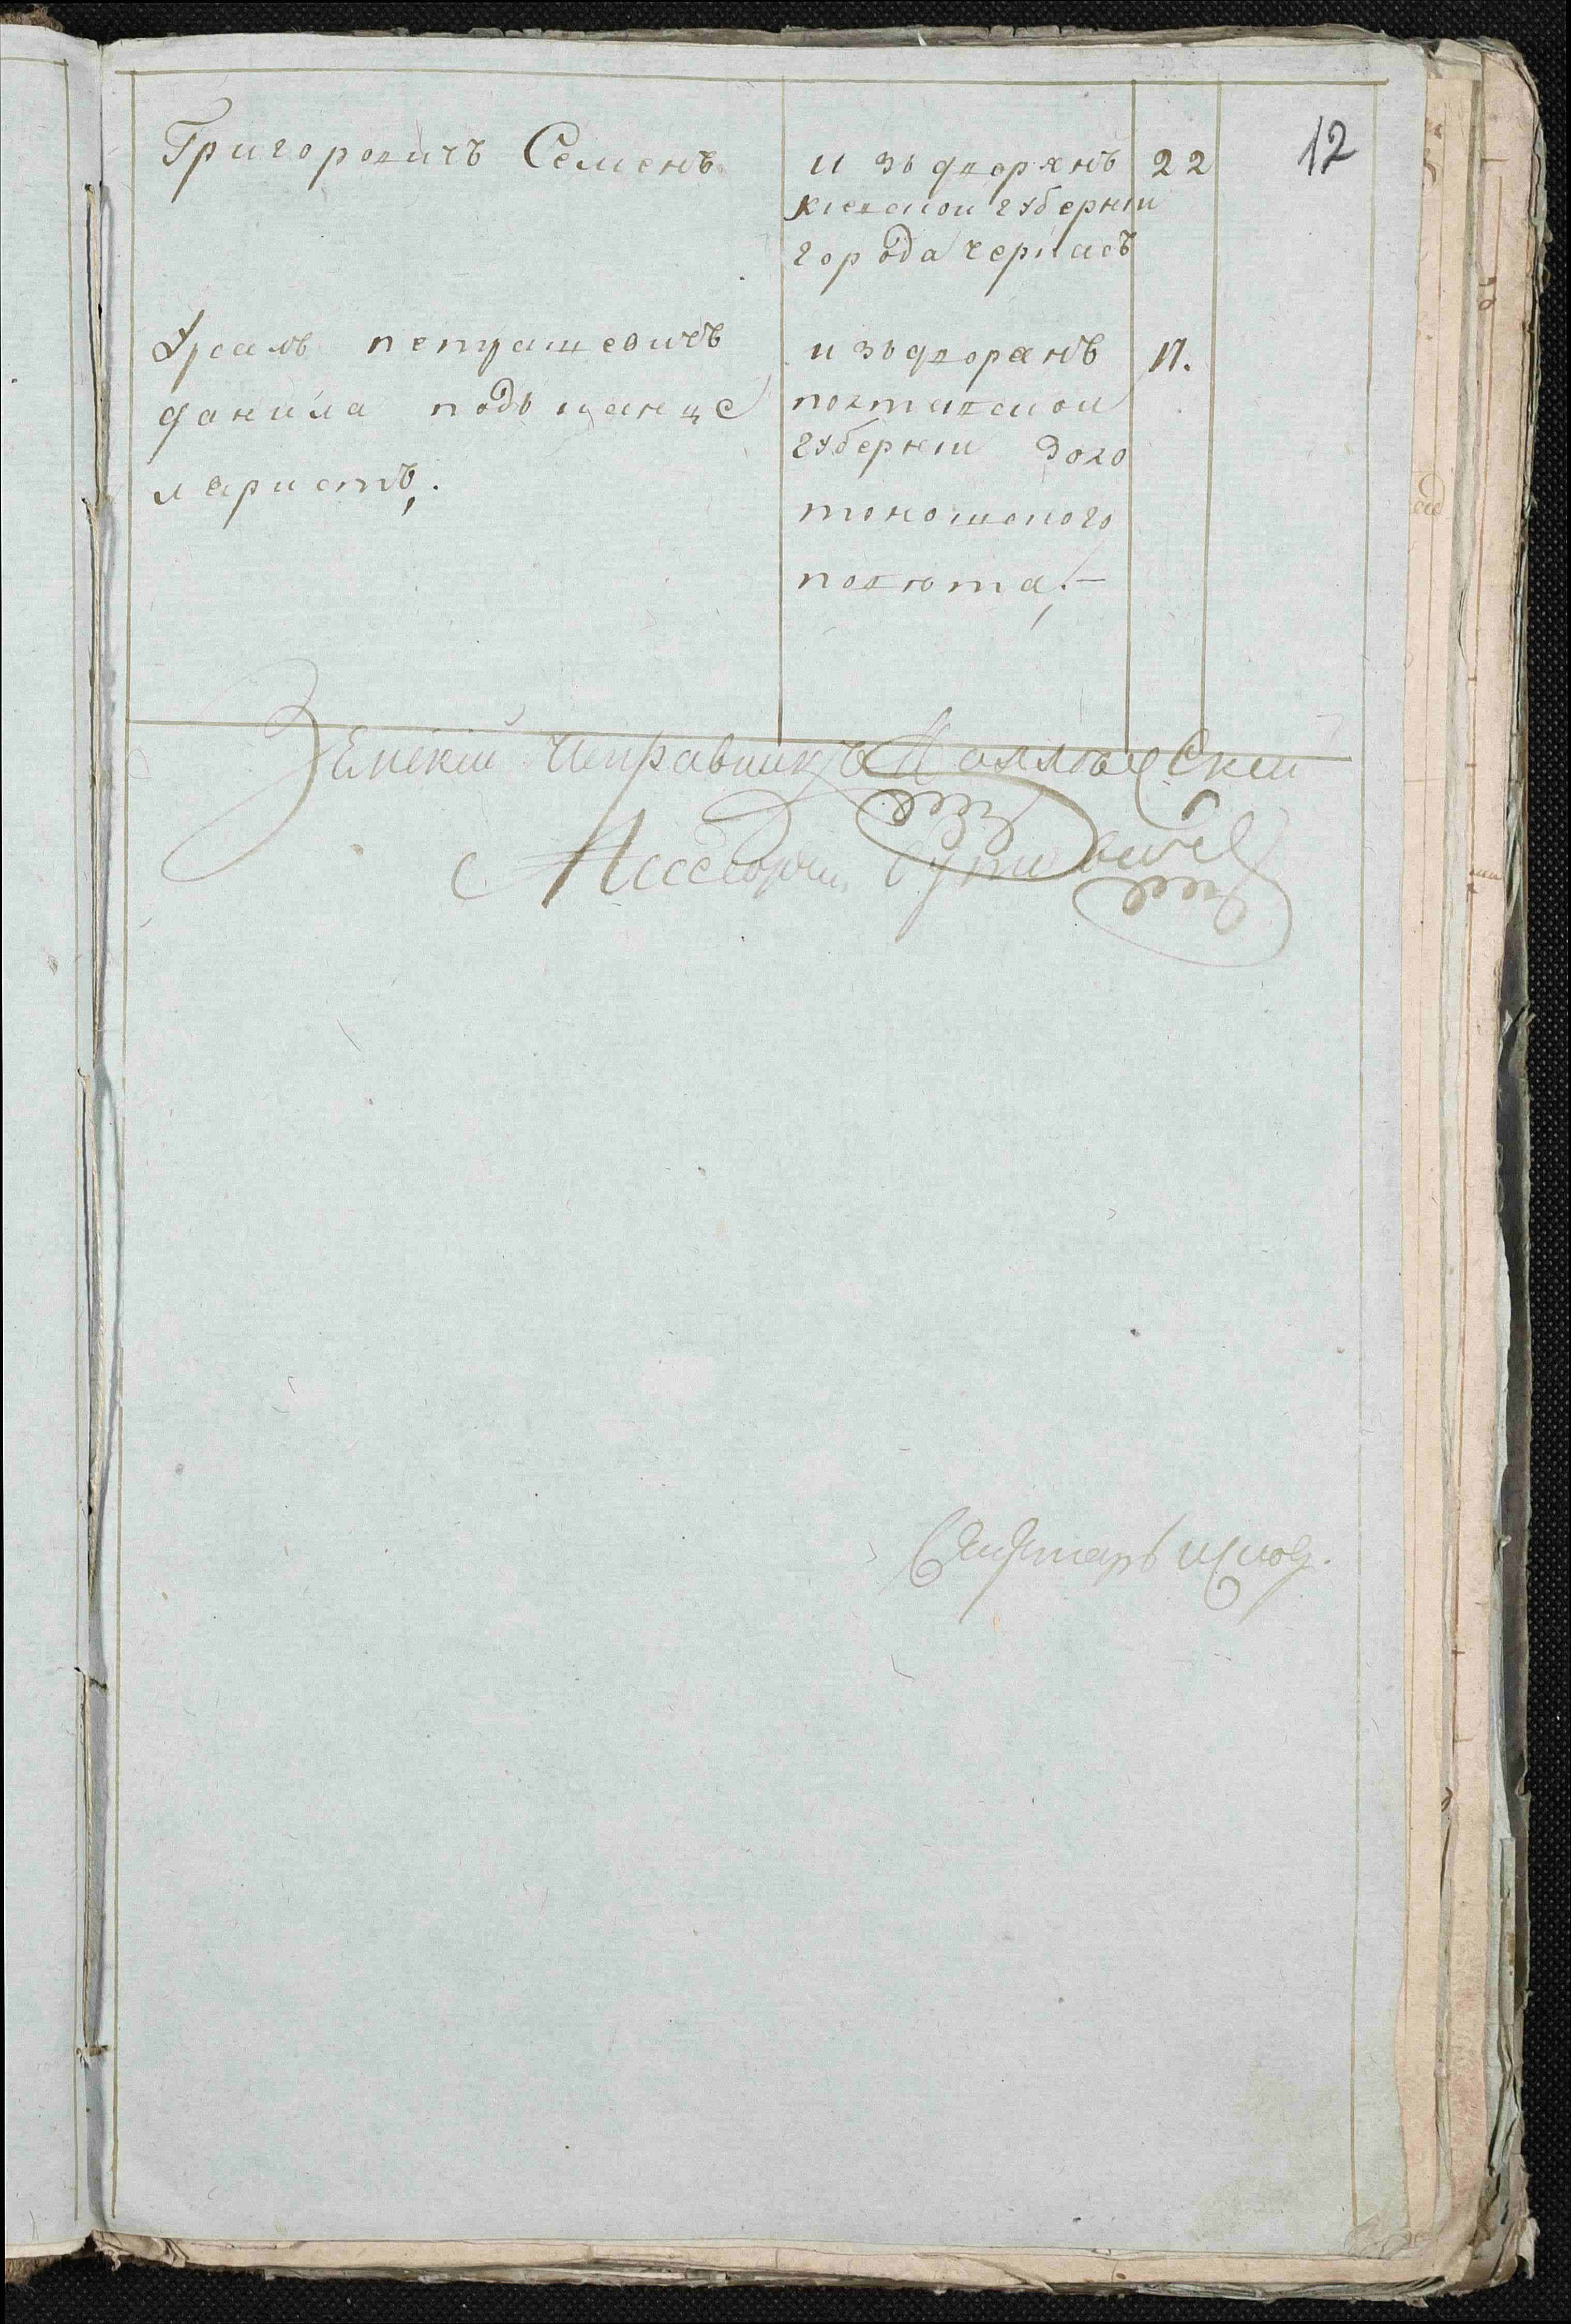 12
Григоровичъ Семенъ
изъ дворянъ 22
киевской губернiи
города черкасъ
петрашевичъ
данила подъканце
ляристъ.
изъ дворянъ 17.
полтавской
губернiи Золо
тоношского
повюта,.—
Земскiй исправникъ
Асесоръ
Секретарь